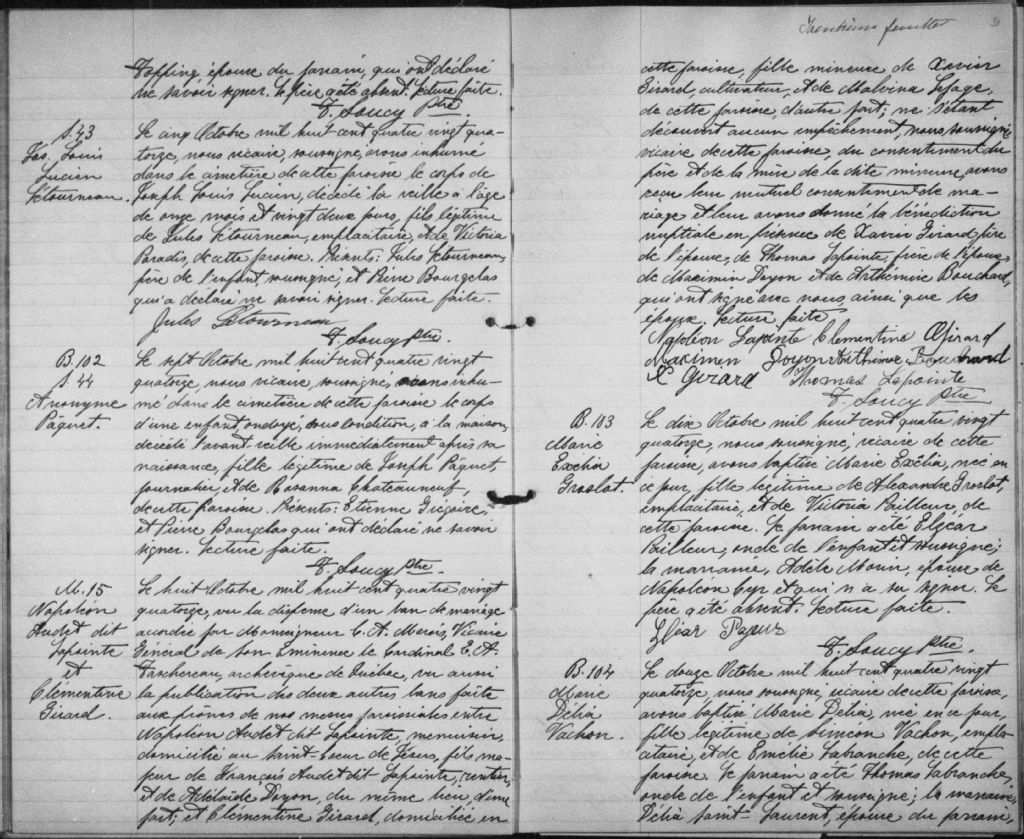 Topping épouse du parrain, qui ont déclaré
ne savoir signer. Le père a été absent. Lecture faite.
F. Soucy Ptre
S. 43
Jos. Louis
Lucien
Létourneau.
Le cinq Octobre mil huit cent quatre vingt qua-
torze, nous vicaire, soussigné, avons inhumé
dans le cimetière de cette paroisse le corps de
Joseph Louis Lucien, décédé la veille à l'âge
de onze mois et vingt deux jours, fils légitime
de Jules Létourneau, emplacitaire, et de Victoria
Paradis, de cette paroisse. Présents: Jules Létourneau,
père de l'enfant, soussigné, et Pierre Bourgelas
qui a déclaré ne savoir signer. Lecture faite.
Jules Létourneau
F. Soucy ptre.
B. 102
S. 44
Anonyme
Pâquet.
Le sept Octobre mil huit cent quatre vingt
quatorze, nous vicaire, soussigné, avons inhu-
mé dans le cimetière de cette paroisse le corps
d'une enfant, ondoyé, sous condition, à la maison,
décédé l'avant veille immédiatement après sa
naissance, fille légitime de Joseph Pâquet,
journalier, et de Rosanna Chateauneuf,
de cette paroisse. Présents: Etienne Grégoire,
et Pierre Bourgelas qui ont déclaré ne savoir
signer. Lecture faite.
F. Soucy Ptre.
M. 15
Napoléon
Audet dit
Lapointe
et
Clémentine
Girard.
Le huit Octobre mil huit cent quatre vingt
quatorze, vu la dispense d'un ban de mariage
accordée par Monseigneur C. A. Marois, Vicaire
Général de Son Eminence le Cardinal E. A.
Taschereau, archevêque de Québec, vu aussi
la publication des deux autres bans faite
aux prônes de nos messes paroissiales entre
Napoléon Audet dit Lapointe, menuisier,
domicilié au Saint-Coeur de Jésus, fils ma-
jeur de François Audet dit Lapointe, rentier,
et de Adélaïde Doyon, du même lieu, d'une
part; et Clémentine Girard, domiciliée en
Trentième feuillet
30
cette paroisse, fille mineure de Xavier
Girard, cultivateur, et de Malvina Lepage,
de cette paroisse, d'autre part; ne s'étant
découvert aucun empêchement, nous soussigné
vicaire de cette paroisse, du consentement du
père et de la mère de la dite mineure, avons
reçu leur mutuel consentement de ma-
riage et leur avons donné la bénédiction
nuptiale en présence de Xavier Girard, père
de l'épouse, de Thomas Lapointe, frère de l'époux,
de Maximin Doyon et de Arthémire Bouchard,
qui ont signé avec nous, ainsi que les
époux. Lecture faite
Napoléon Lapointe Clementine Girard
Maximin Doyon Arthémire Bouchard
X Girard Thomas Lapointe
F. Soucy Ptre
B. 103
Marie
Exélia
Groslot.
Le dix Octobre mil huit cent quatre vingt
quatorze, nous soussigné, vicaire de cette
paroisse, avons baptisé Marie Exélia, née en
ce jour, fille légitime de Alexandre Groslot,
emplacitaire, et de Victoria Pailleur, de
cette paroisse. Le parrain a été Elzéar
Pailleur, oncle de l'enfant et soussigné;
la marraine, Adèle Morin, épouse de
Napoléon Cyr et qui n'a su signer. Le
père a été absent. Lecture faite.
F. Soucy Ptre.
B. 104
Marie
Délia
Vachon.
Le douze Octobre mil huit cent quatre vingt
quatorze, nous soussigné, vicaire de cette paroisse,
avons baptisé Marie Délia, née en ce jour,
fille légitime de Siméon Vachon, empla-
citaire, et de Emélie Labranche, de cette
paroisse. Le parrain a été Thomas Labranche,
oncle de l'enfant et soussigné; la marraine,
Délia Saint-Laurent, épouse du parrain,